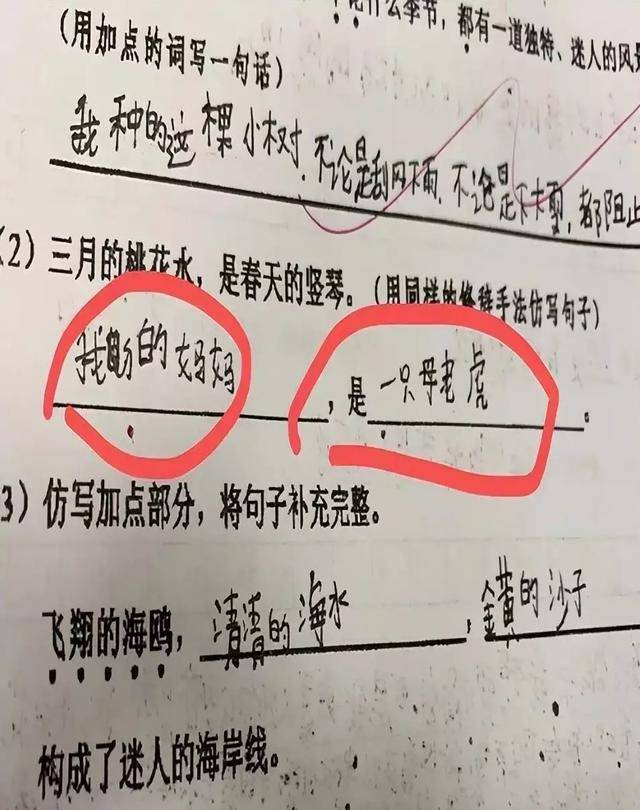 论什么季节，都有一道独特、迷人的风景
(用加点的词写一句话)
我种的这棵小树，不论是刮风下雨，不论是下大雪，都阻止
(2) 三月的桃花水，是春天的竖琴。(用同样的修辞手法仿写句子)
的妈妈，是一只母老虎。
3) 仿写加点部分，将句子补充完整。
飞翔的海鸥，清清的海水，金黄的沙子
构成了迷人的海岸线。